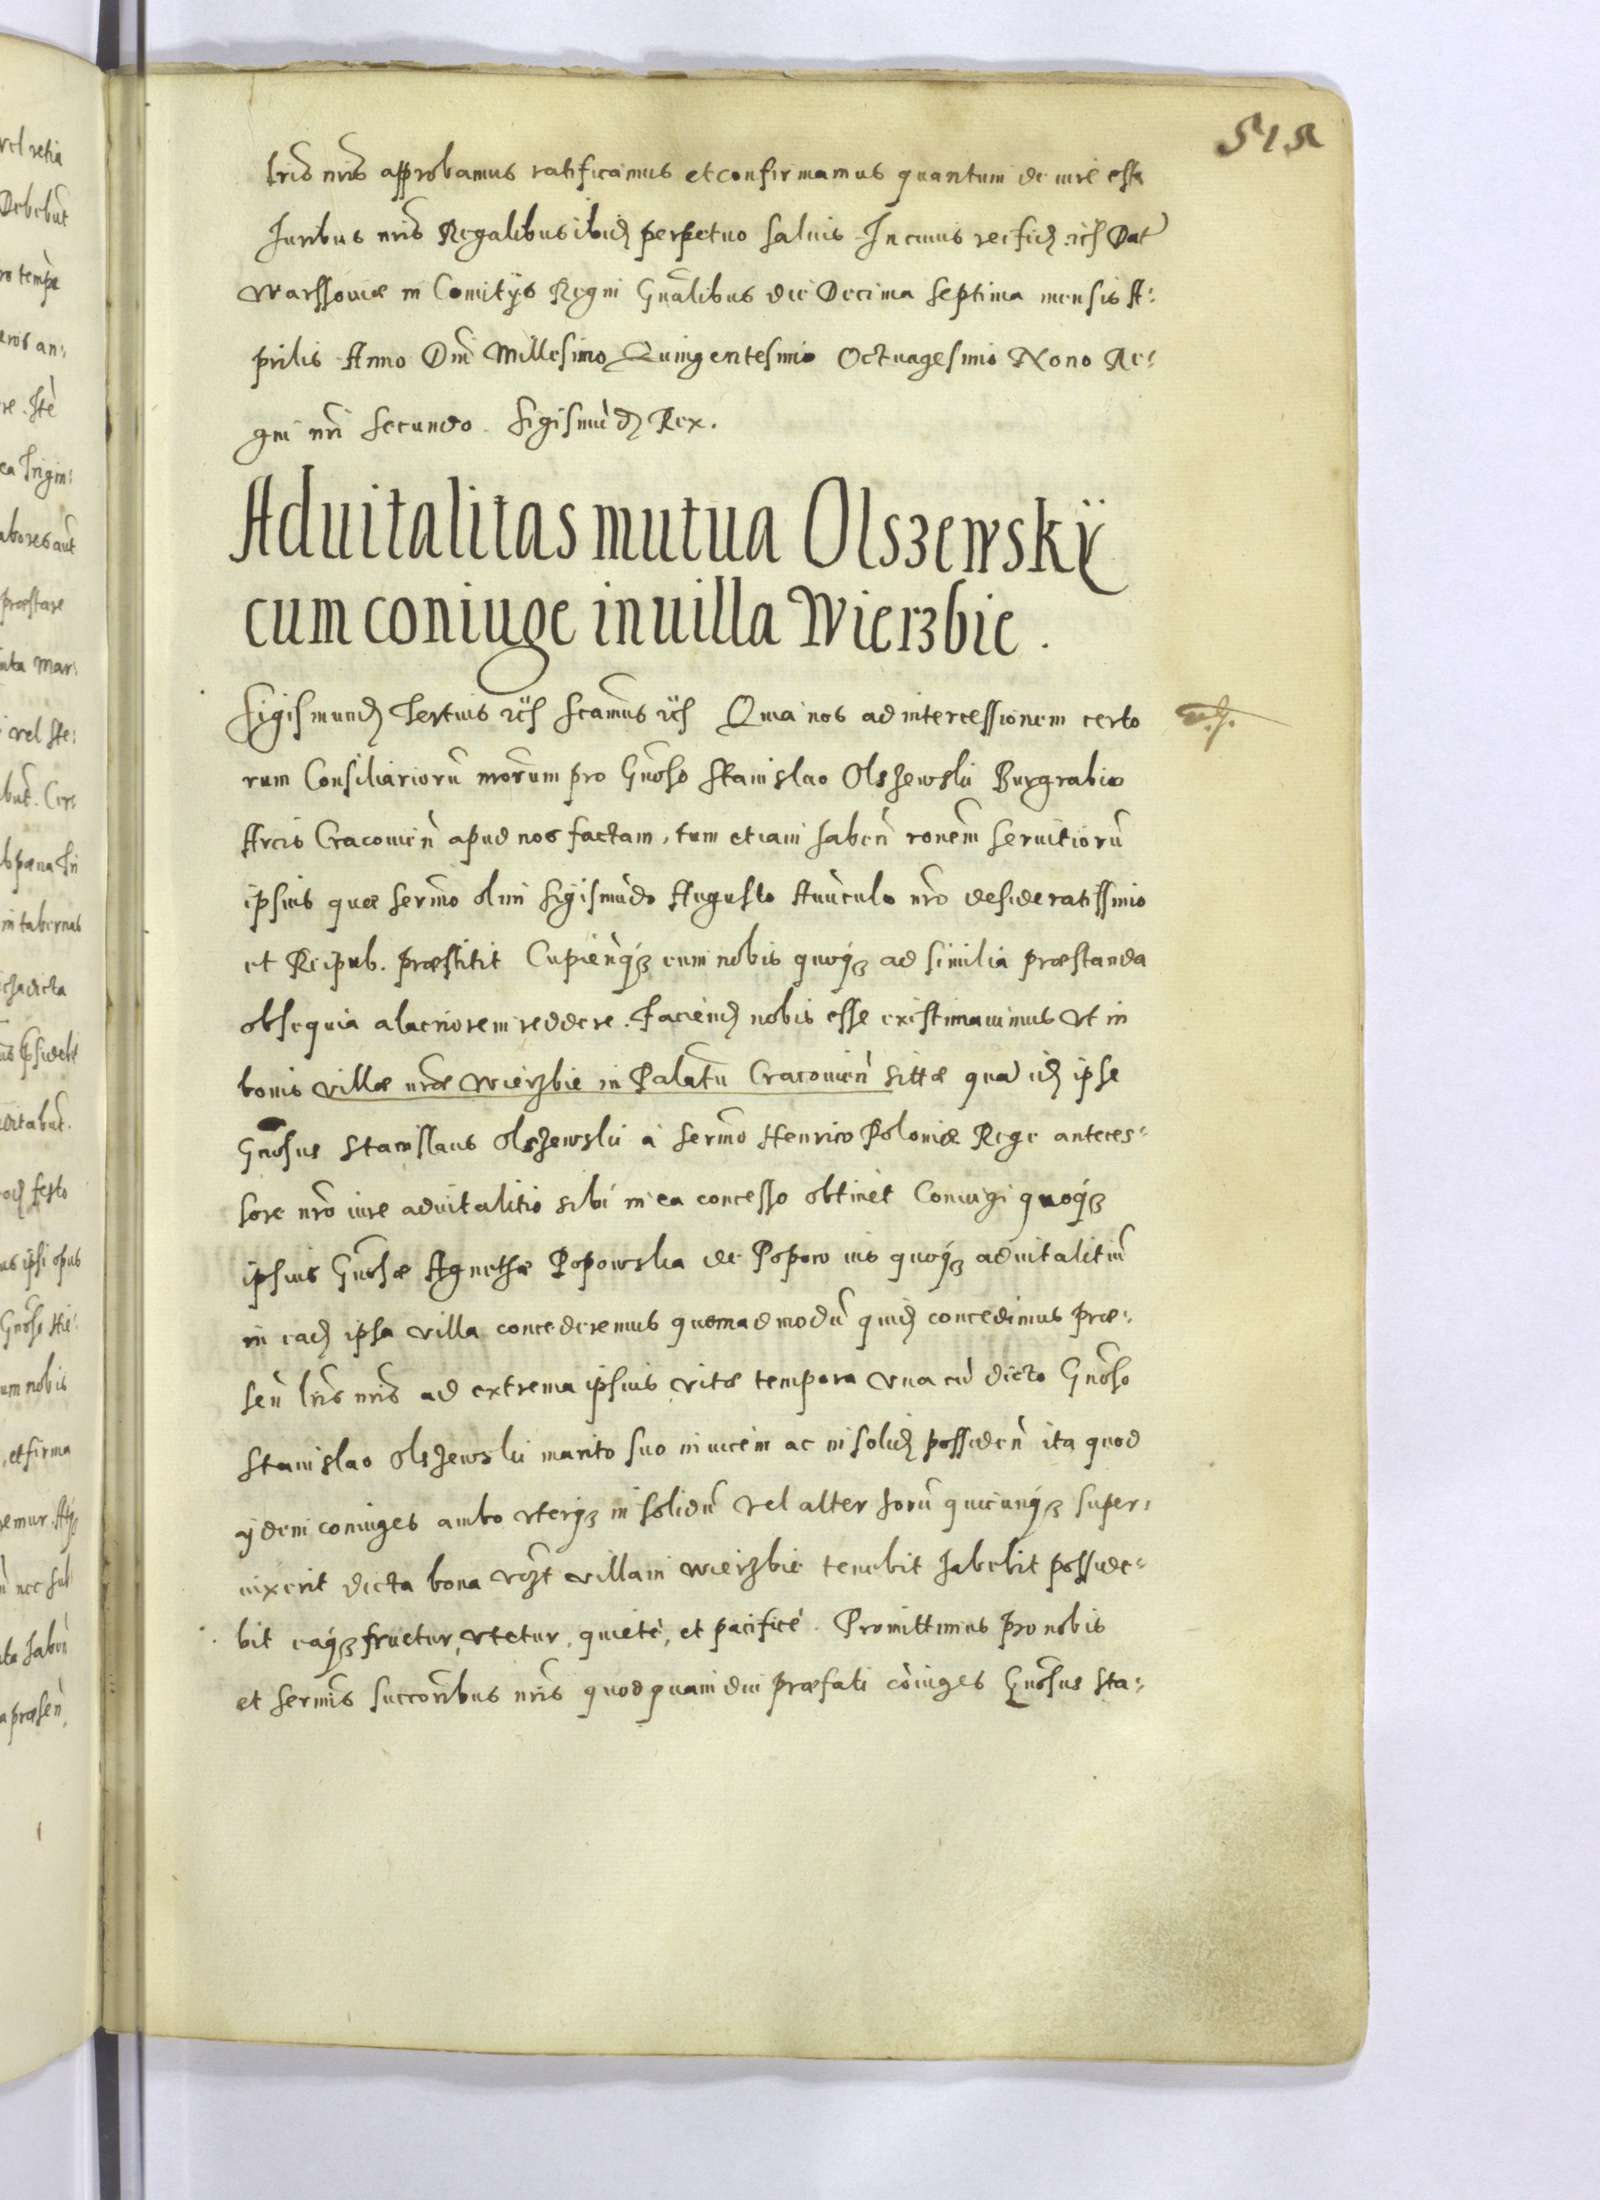 515
lris nris approbamus ratificamus et confirmamus quantum de iure est
Juribus nris Regalibus ibid perpetuo saluis In cuius rei fid etc Dat
Warssouiæ in Comitijs Regni Gnalibus die Decima septima mensis A:
prilis Anno Dni Millesimo Quingentesimo Octuagesimo Nono Re:
gni nri secundo. Sigismūd Rex.
Aduitalitas mutua Olszewskÿ
cum coniuge in uilla Wierzbie.
Sigismund Tertius etc scamus etc Quia nos ad intercessionem certo
rum Consiliariorū nrorum pro Gnoso Stanislao Olszewski Burgrabio
Arcis Cracouien apud nos factam, tum etiam haben ronem seruitiorū
ipsius quæ sermo olim Sigismūdo Augusto Auūculo nro desideratissimo
et Reipub. præstitit Cupienqȝ eum nobis quoqȝ ad similia præstanda
obsequia alacriorem reddere. Faciend nobis esse existimauimus vt in
bonis villæ nræ Wierzbie in Palatu Cracouien sittæ quā id ipse
Gnosus Stanislaus Olszewski à sermo Henrico Poloniæ Rege anteces:
sore nro iure aduitalitio sibi in ea concesso obtinet Coniugi quoqȝ
ipsius Gnosæ Agnethæ Popowska de Popow ius quoqȝ aduitalitiū
in ead ipsa villa concederemus quemadmodū quid concedimus præ:
sen lris nris ad extrema ipsius vitæ tempora vna cū dicto Gnoso
Stanislao Olszewski marito suo inuicem ac in solid possiden ita quod
ijdem coniuges ambo vterqȝ in solidū vel alter horū quicunqȝ super:
uixerit dicta bona vȝt villam Wierzbie tenebit habebit posside:
bit eaqȝ fruetur, vtetur, quietè, et pacificè. Promittimus pro nobis
et sermis succoribus nris quod quamdiu præfati cōiuges Gnosus Sta: